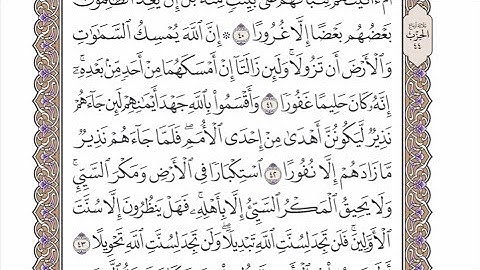 بَعْضُهُم بَعْضًا إِلَّا غُرُورًا ٤٠ ۞ إِنَّ ٱللَّهَ يُمْسِكُ ٱلسَّمَٰوَٰتِ
وَٱلْأَرْضَ أَن تَزُولَا ۚ وَلَئِن زَالَتَآ إِنْ أَمْسَكَهُمَا مِنْ أَحَدٍ مِّنۢ بَعْدِهِۦٓ ۚ
إِنَّهُۥ كَانَ حَلِيمًا غَفُورًا ٤١ وَأَقْسَمُوا۟ بِٱللَّهِ جَهْدَ أَيْمَٰنِهِمْ لَئِن جَآءَهُمْ
نَذِيرٌ لَّيَكُونُنَّ أَهْدَىٰ مِنْ إِحْدَى ٱلْأُمَمِ ۖ فَلَمَّا جَآءَهُمْ نَذِيرٌ
مَّا زَادَهُمْ إِلَّا نُفُورًا ٤٢ ٱسْتِكْبَارًا فِى ٱلْأَرْضِ وَمَكْرَ ٱلسَّيِّئِ ۚ
وَلَا يَحِيقُ ٱلْمَكْرُ ٱلسَّيِّئُ إِلَّا بِأَهْلِهِۦ ۚ فَهَلْ يَنظُرُونَ إِلَّا سُنَّتَ
ٱلْأَوَّلِينَ ۚ فَلَن تَجِدَ لِسُنَّتِ ٱللَّهِ تَبْدِيلًا ۖ وَلَن تَجِدَ لِسُنَّتِ ٱللَّهِ تَحْوِيلًا ٤٣
الحزب
٤٤